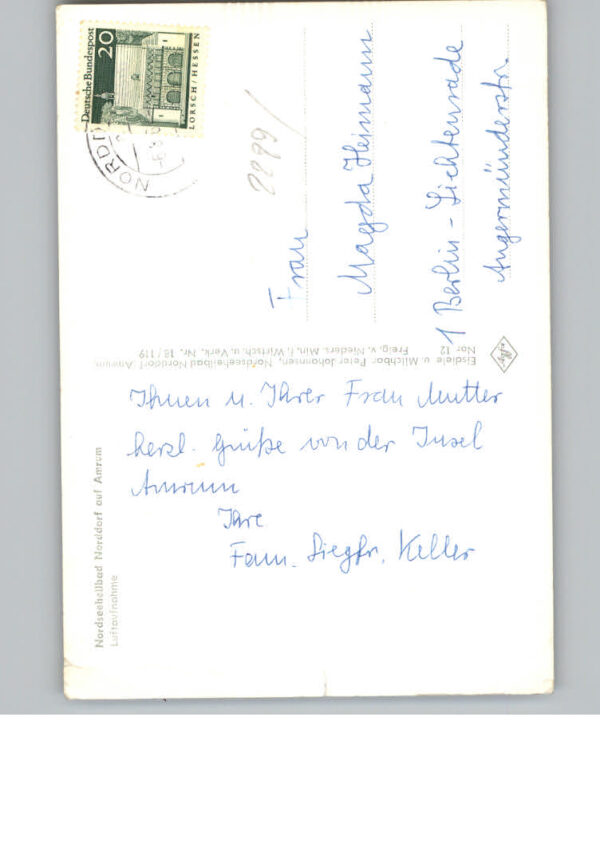 Ihnen u. Ihrer Frau Mutter
herzl. Grüße von der Insel
Amrum
Ihre
Fam. Siegfr. Keller
Frau
Magda Heimann
1 Berlin - Lichtenrade
Angermünderstr.
2899/
Deutsche Bundespost
20
LORSCH / HESSEN
NORDD
Nordseeheilbad Norddorf auf Amrum
Luftaufnahme
Eisdiele u. Milchbar Peter Johannsen, Nordseeheilbad Norddorf Amrum
Nor 12
Freig. v. Nieders. Min. f. Wirtsch. u. Verk. Nr. 18/119